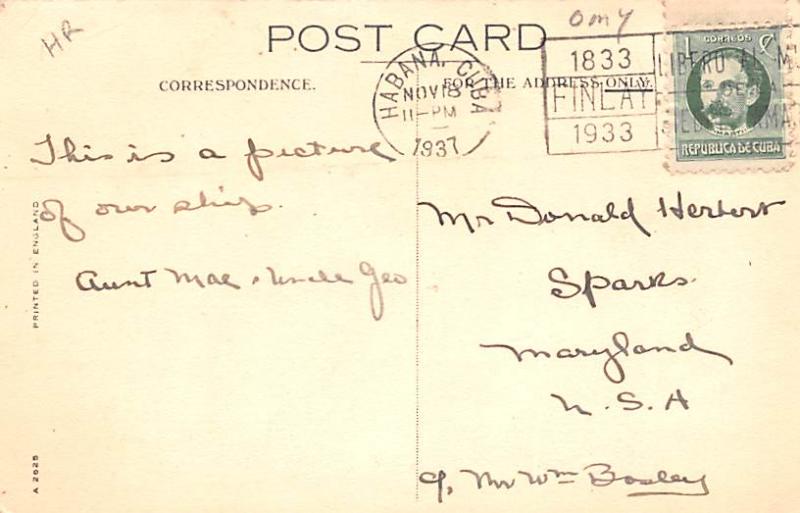 HR
POST CARD
CORRESPONDENCE.
FOR THE ADDRESS ONLY.
HABANA, CUBA
NOV 18
11-PM
1937
1833
FINLAY
1933
CORREOS
REPUBLICA DE CUBA
This is a picture
of our ship.
Aunt Mae & Uncle Geo
Mr Donald Herbert
Sparks
Maryland
U. S. A
c/o Mr Wm Bosley
PRINTED IN ENGLAND
A 2625